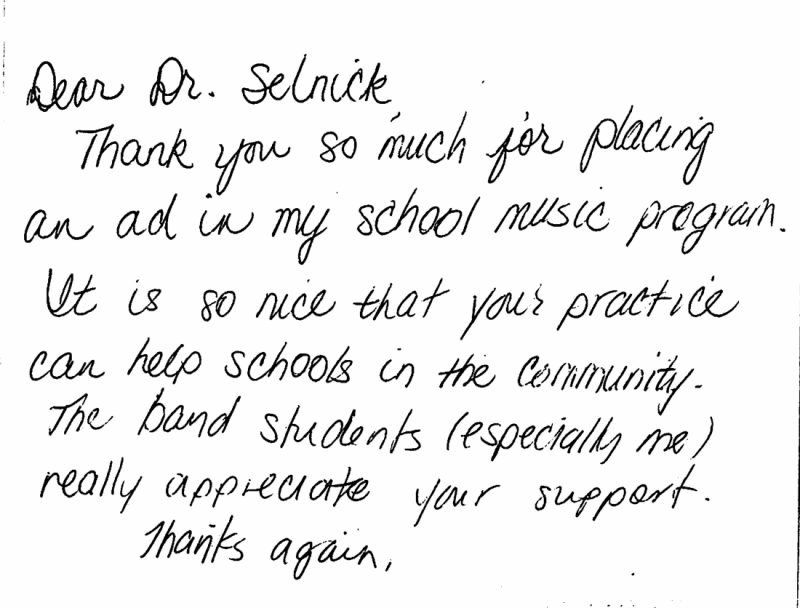 Dear Dr. Selnick,
Thank you so much for placing
an ad in my school music program.
It is so nice that your practice
can help schools in the community.
The band students (especially me)
really appreciate your support.
Thanks again,